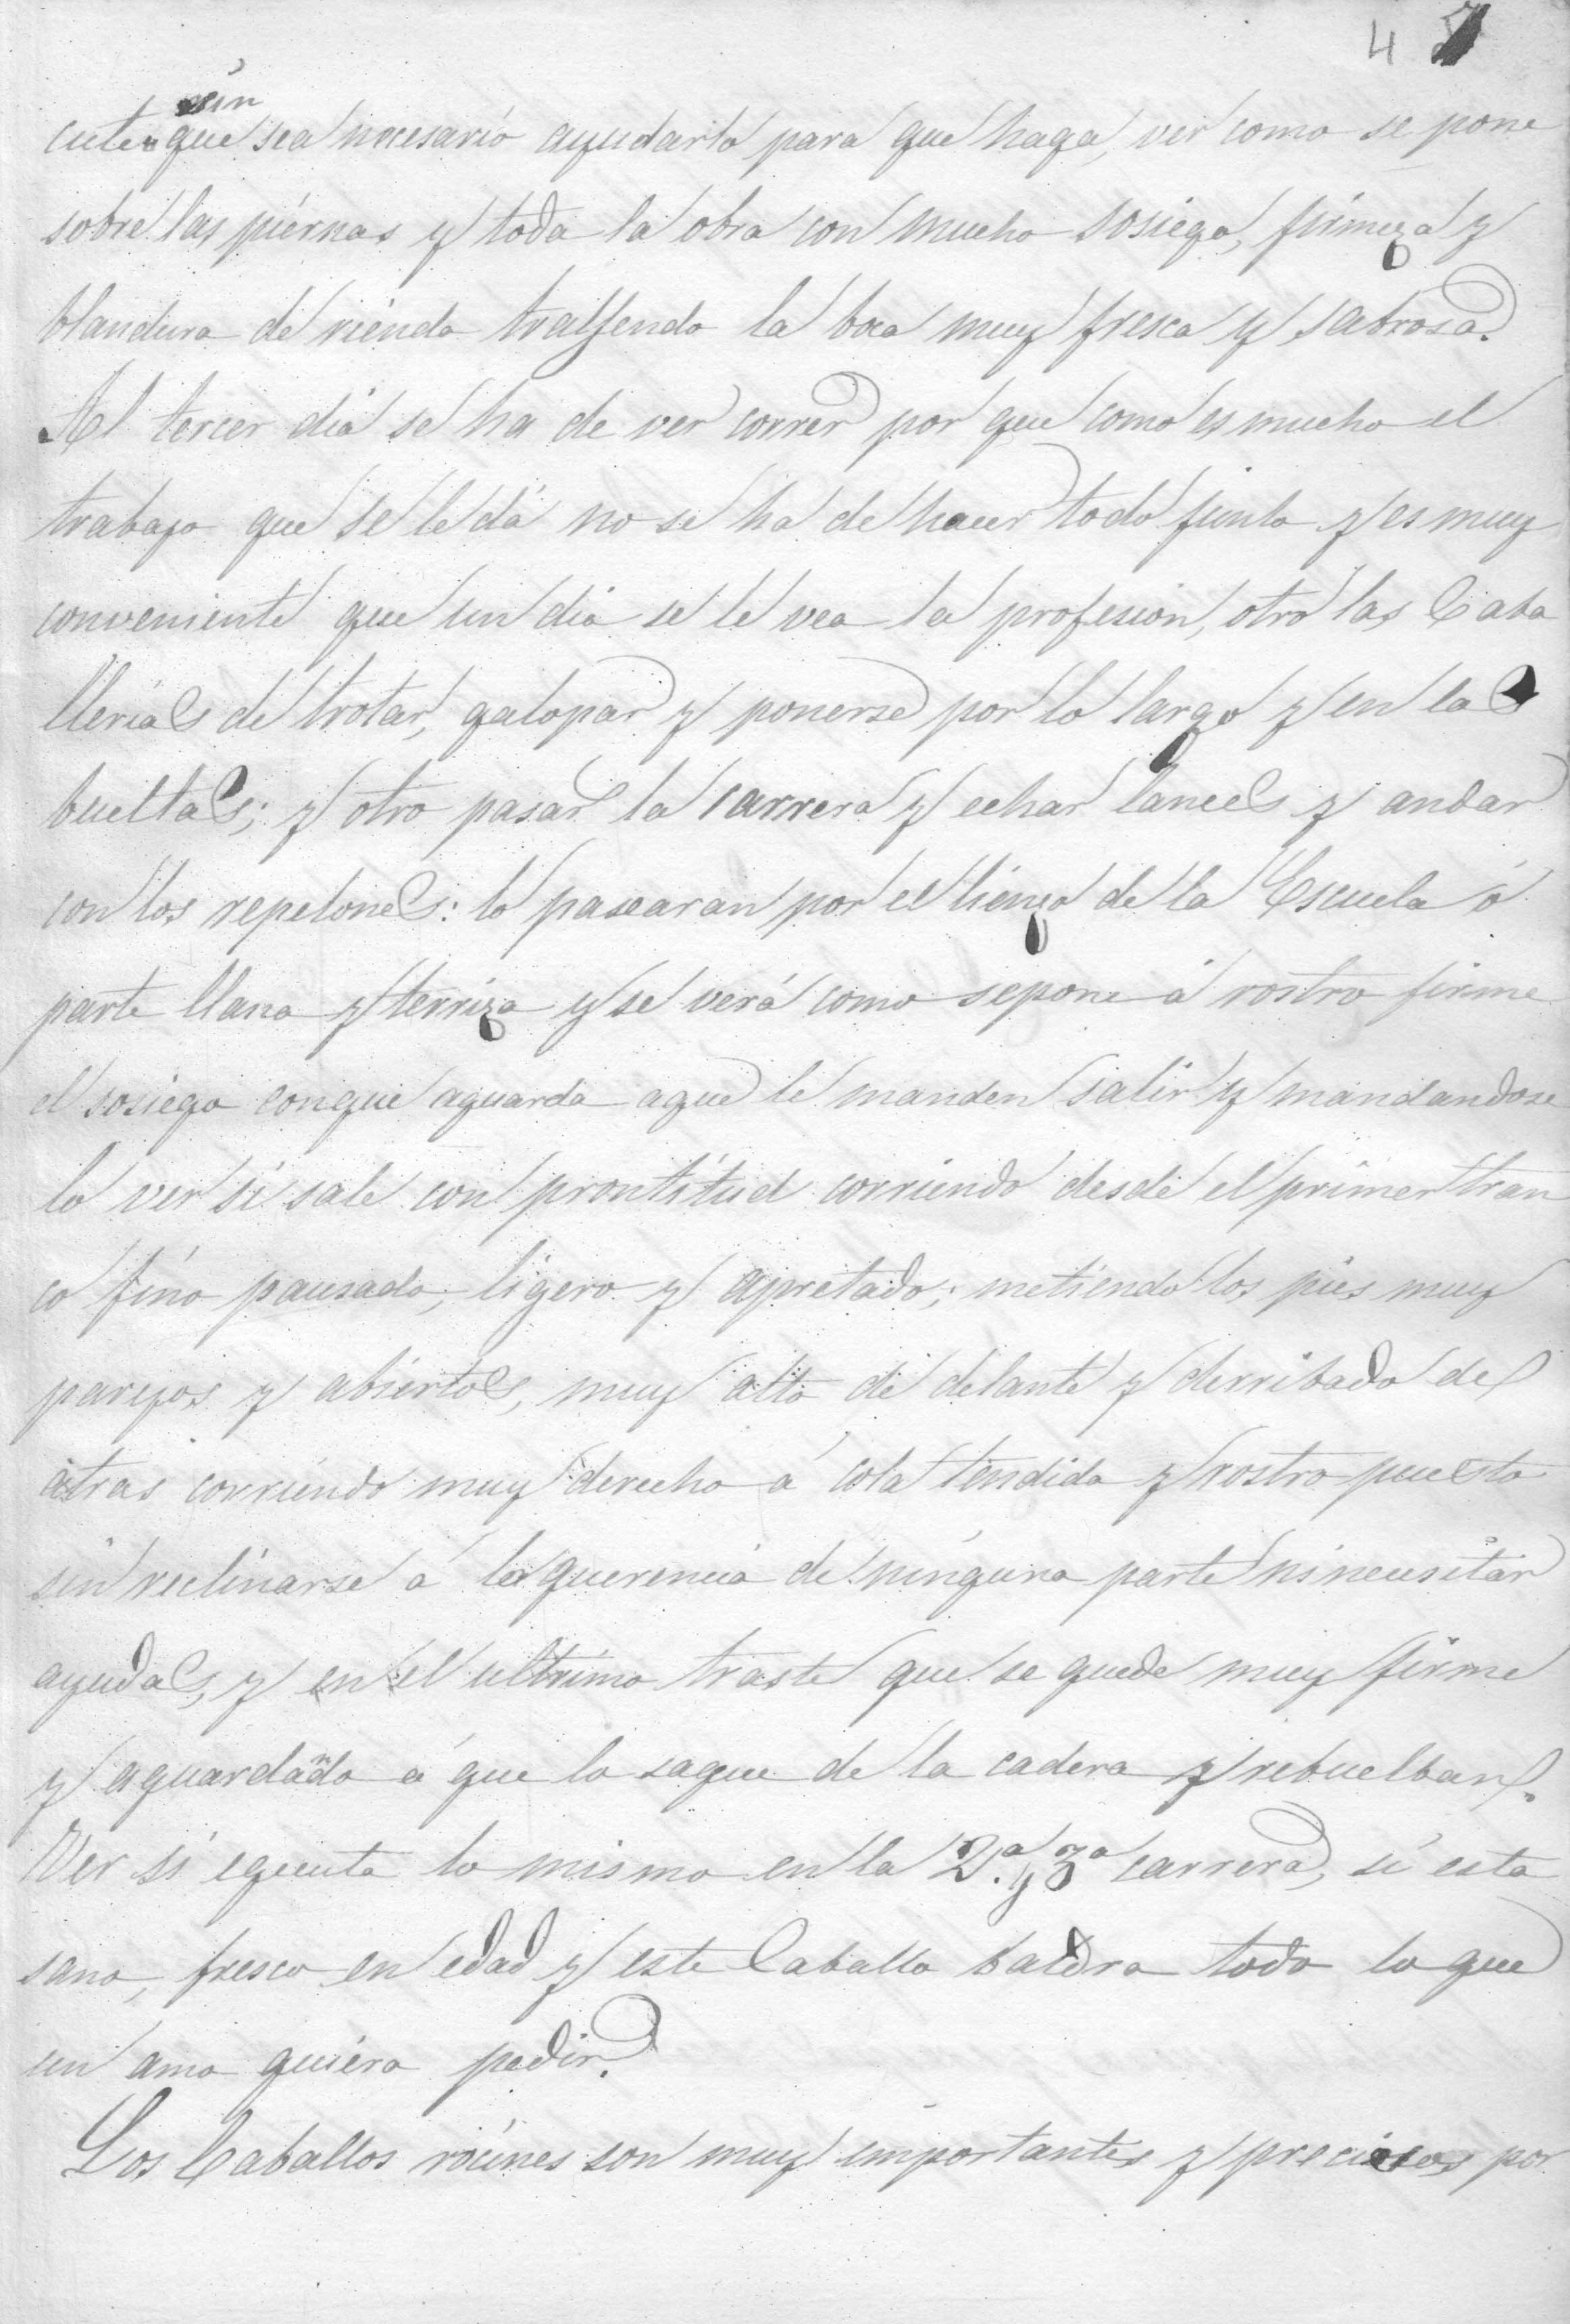 4
sin
cute que sea necesario ayudarlo para que haga, ver como se pone
sobre las piernas y toda la obra con mucho sosiego, firmeza y
blandura de rienda trallendo la boca muy fresca y sabrosa.
Al tercer dia se ha de ver correr por que como es mucho el
trabajo que se le dá no se ha de hacer todo junto y es muy
conveniente que un dia se le vea la profesion, otro las Caba
llerias de trotar, galopar y ponerse por lo largo y en las
bueltas; y otro pasar la carrera y echar lances y andar
con los repelones: lo pasearan por el lienzo de la Escuela ó
parte llana y terriza y se verá como sepone á rostro firme
el sosiego conque aguarda aque le manden salir y mandandose
lo ver si sale con prontitud corriendo desde el primer tran
co fino pausado, ligero y apretado; metiendo los pies muy
parejos y abiertos, muy alto de delante y derribado de
atras corriendo muy derecho á cola tendida y rostro puesto
sin reclinarse á la querencia de ninguna parte ni necesitar
ayudas, y en el ultimo traste que se quede muy firme
y aguardando á que lo saque de la cadera y rebuelban.
Ver si egecuta lo mismo en la 2.ª y 3ª carrera, si esta
sano, fresco en edad y este Caballo baldra todo lo que
un amo quiera pedir.
Los Caballos rocines son muy importantes y precisos por